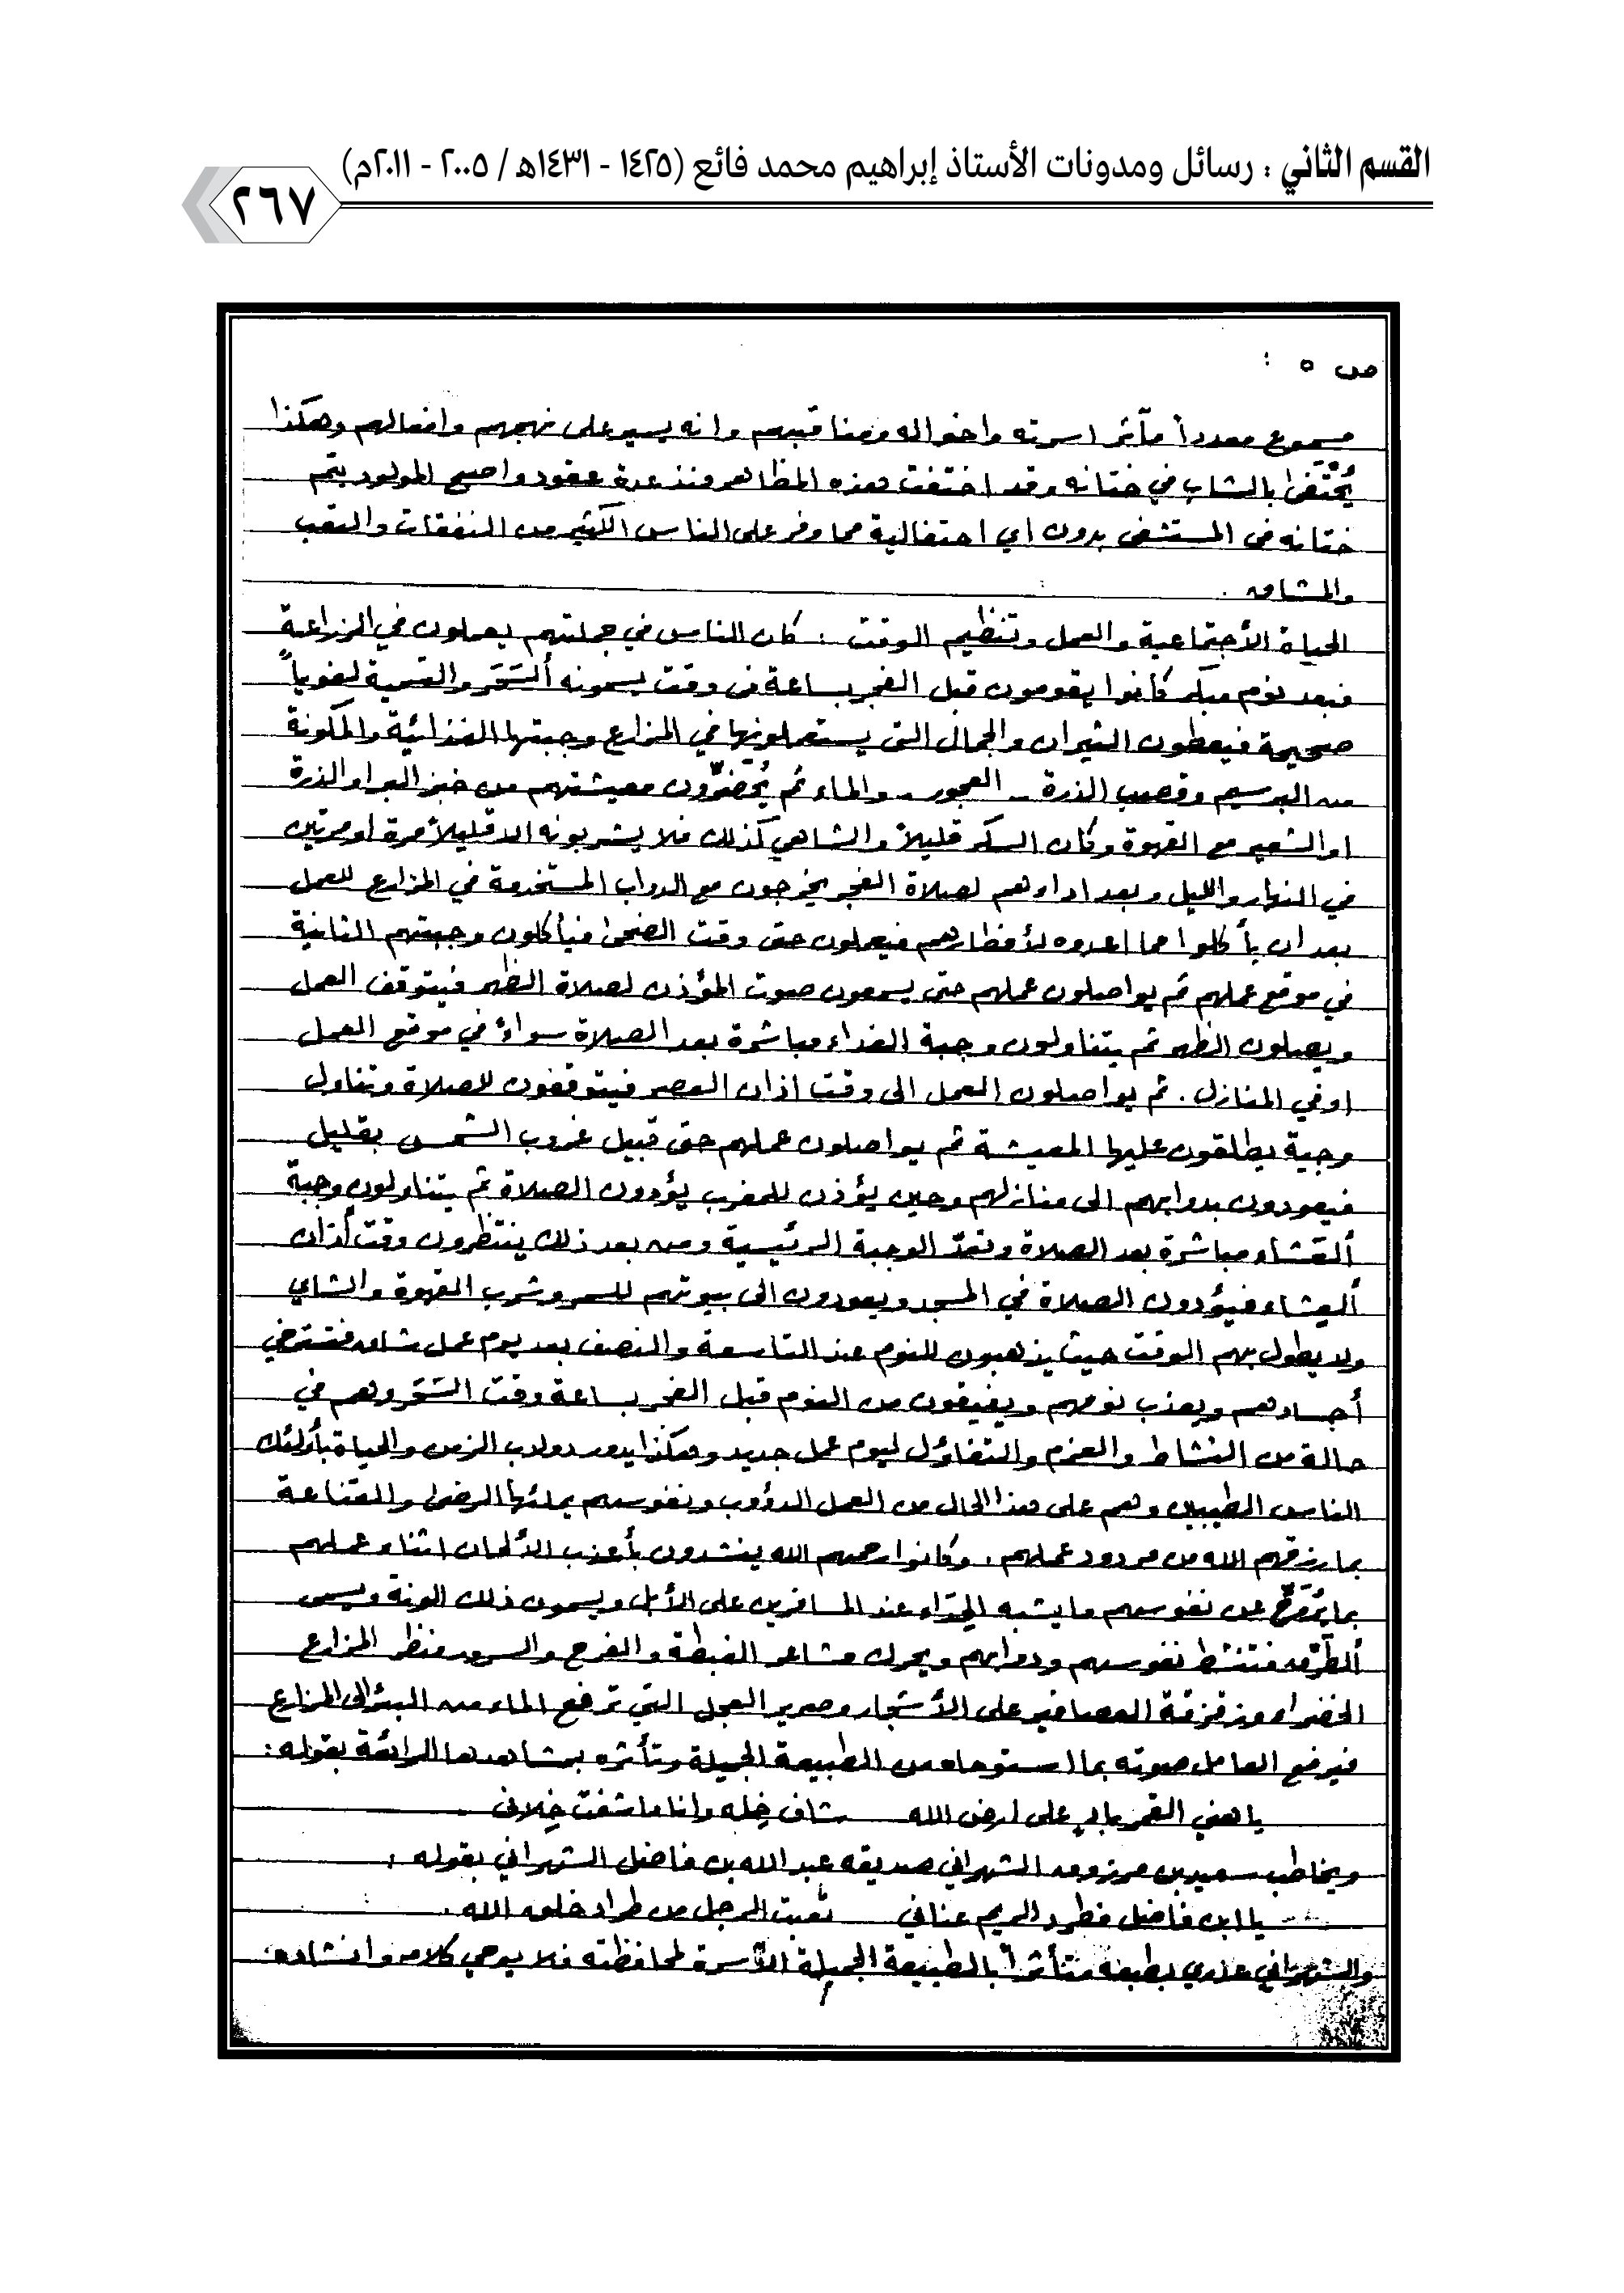 القسم الثاني : رسائل ومدونات الأستاذ إبراهيم محمد فائع (١٤٢٥ - ١٤٣١هـ / ٢٠٠٥ - ٢٠١١م)
٢٦٧
ص ٥ :
مسموع معدداً مآثر اسرته واخواله ومناقبهم وانه يسير على نهجهم وافعالهم وهكذا
يُحْتَفىٰ بالشاب في ختانه وقد اختفت هذه المظاهر منذ عدة عقود واصبح المولود يتم
ختانه في المستشفى بدون اي احتفالية مما وفر على الناس الكثير من النفقات والتعب
والمشاق .
الحياة الأجتماعية والعمل وتنظيم الوقت : كان الناس في جملتهم يعملون في الزراعة
فبعد نوم مبكر كانوا يقومون قبل الفجر بساعة في وقت يسمونه ألسَحَر والتسمية لغوياً
صحيحة فيعطون الثيران والجمال التي يستعملونها في المزارع وجبتها الغذائية والمكونة
من البرسيم وقصب الذرة - العجور - والماء ثم يُحَضّرون معيشتهم من خبز البر او الذرة
او الشعير مع القهوة وكان السكر قليلاً والشاهي كذلك فلا يشربونه الا قليلاً مرة او مرتين
في النهار والليل وبعد اداءهم لصلاة الفجر يخرجون مع الدواب المستخدمة في المزارع للعمل
بعد ان يأكلوا مما اعدوه لأفطارهم فيعملون حتى وقت الضحىٰ فيأكلون وجبتهم الثانية
في موقع عملهم ثم يواصلون عملهم حتى يسمعون صوت المؤذن لصلاة الظهر فيتوقف العمل
ويصلون الظهر ثم يتناولون وجبة الغداء مباشرة بعد الصلاة سواءً في موقع العمل
اوفي المنازل . ثم يواصلون العمل الى وقت اذان العصر فيتوقفون للصلاة وتناول
وجبة يطلقون عليها المعيشة ثم يواصلون عملهم حتى قبيل غروب الشمس بقليل
فيعودون بدوابهم الى منازلهم وحين يؤذن للمغرب يؤدون الصلاة ثم يتناولون وجبة
ألعَشاء مباشرة بعد الصلاة وتعدّ الوجبة الرئيسية ومن بعد ذلك ينتظرون وقت أذان
ألعِشاء فيؤدون الصلاة في المسجد ويعودون الى بيوتهم للسمر وشرب القهوة والشاي
ولا يطول بهم الوقت حيث يذهبون للنوم عند التاسعة والنصف بعد يوم عمل شاق فتسترخي
أجسادهم ويعذب نومهم ويفيقون من النوم قبل الفجر بساعة وقت السَحَر وهم في
حالة من النشاط والعزم والتفاؤل ليوم عمل جديد وهكذا يدور دولاب الزمن والحياة بأولئك
الناس الطيبين وهم على هذا الحال من العمل الدؤوب ونفوسهم يملئها الرضىٰ والقناعة
بما رزقهم الله من مردود عملهم . وكانوا رحمهم الله ينشدون بأعذب الألحان اثناء عملهم
بما يُرَوّح عن نفوسهم ما يشبه الحِدَاء عند المسافرين على الأبل ويسمون ذلك الونة ويسمى
ألطَرَق فتنشط نفوسهم ودوابهم ويحرك مشاعر الغبطة والفرح والسرور منظر المزارع
الخضراء وزقزقة العصافير على الأشجار وصرير العجل التي ترفع الماء من البئر الى المزارع
فيرفع العامل صوته بما استوحاه من الطبيعة الجميلة وتأثره بمشاهدها الرائعة بقوله :
يا هني القمر على ارض الله شاف خِله وانا ما شفت خِلاني
ويخاطب سعيد بن مرزوق الشهراني صديقه عبدالله بن فاضل الشهراني بقوله :
يا ابن فاضل فطرد الريم عناني تعبت الرجل من طراد خلق الله .
والشهراني عادي بطبعه متأثراً بالطبيعة الجميلة الآسرة لمحافظته فلا يوحي كلامه وانشاده